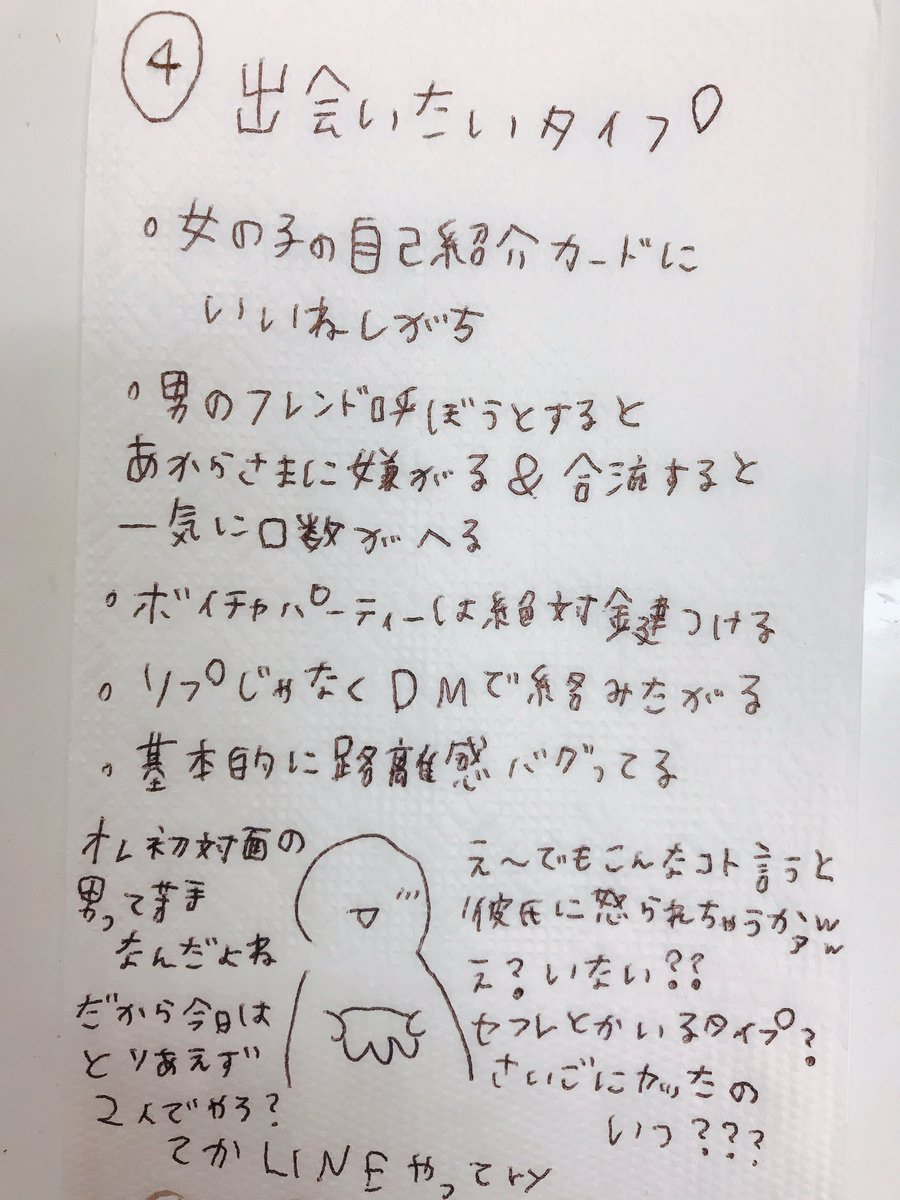 ④ 出会いたいタイプ
。女の子の自己紹介カードに
いいねしがち
。男のフレンド呼ぼうとすると
あからさまに嫌がる & 合流すると
一気に口数がへる
。ボイチャパーティーは絶対鍵つける
。リプじゃなくDMで絡みたがる
。基本的に距離感バグってる
オレ初対面の
男って苦手
なんだよね
だから今日は
とりあえず
2人でやろ?
てかLINEやってry
え〜でもこんなコト言うと
彼氏に怒られちゃうかァww
え?いない??
セフレとかいるタイプ?
さいごにヤッたの
いつ???